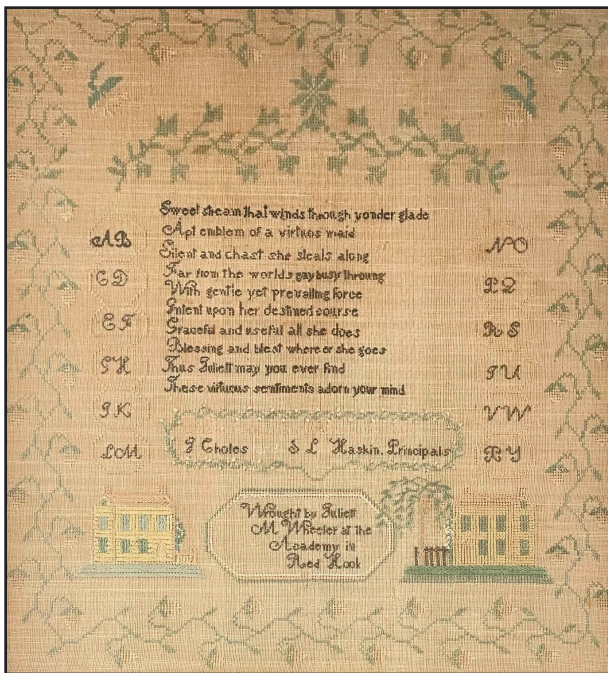 Sweet stream that winds through yonder glade
Apt emblem of a virtues maid
Silent and chast she steals along
Far from the worlds gay busy throung
With gentle yet prevailing force
Intent upon her destined course
Graceful and useful all she does
Blessing and blest where er she goes
Thus Juliett may you ever find
These virtuous sentiments adorn your mind
AB
CD
EF
GH
IK
LM
NO
PQ
RS
TU
VW
XY
J Choles S L Haskin. Principals
Wrought by Juliett
M Wheeler at the
Academy in
Red Hook